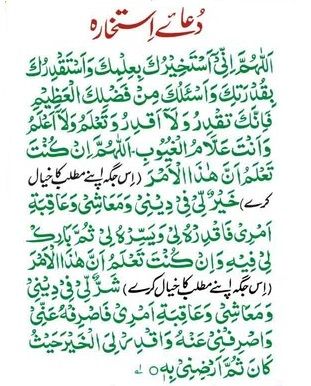 دُعائے اِستخارہ
اَللّٰهُمَّ اِنِّىْ اَسْتَخِيْرُكَ بِعِلْمِكَ وَاَسْتَقْدِرُكَ
بِقُدْرَتِكَ وَاَسْئَلُكَ مِنْ فَضْلِكَ الْعَظِيْمِ
فَاِنَّكَ تَقْدِرُ وَلَا اَقْدِرُ وَتَعْلَمُ وَلَا اَعْلَمُ
وَاَنْتَ عَلَّامُ الْغُيُوْبِ اَللّٰهُمَّ اِنْ كُنْتَ
تَعْلَمُ اَنَّ هٰذَا الْاَمْرَ (اِس جگہ اپنے مطلب کا خیال
کرے) خَيْرٌ لِّىْ فِىْ دِيْنِىْ وَمَعَاشِىْ وَعَاقِبَةِ
اَمْرِىْ فَاقْدِرْهُ لِىْ وَيَسِّرْهُ لِىْ ثُمَّ بَارِكْ
لِىْ فِيْهِ وَاِنْ كُنْتَ تَعْلَمُ اَنَّ هٰذَا الْاَمْرَ
(اِس جگہ اپنے مطلب کا خیال کرے) شَرٌّ لِّىْ فِىْ دِيْنِىْ
وَمَعَاشِىْ وَعَاقِبَةِ اَمْرِىْ فَاصْرِفْهُ عَنِّىْ
وَاصْرِفْنِىْ عَنْهُ وَاقْدِرْ لِىَ الْخَيْرَ حَيْثُ
كَانَ ثُمَّ اَرْضِنِىْ بِهٖ ○